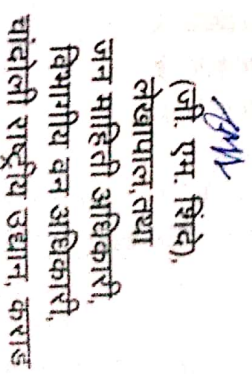 (जी. एम. शिंदे),
लेखापाल,तथा
जन माहिती अधिकारी,
विभागीय वन अधिकारी,
चांदोली राष्ट्रीय उद्यान, कराड